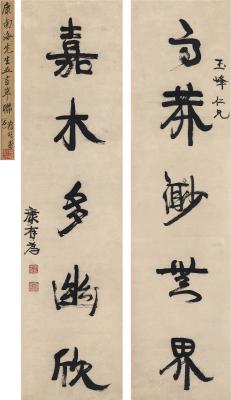 玉峰仁兄
高莽渺世界
嘉木多幽欣
康有為
康南海先生五言聯